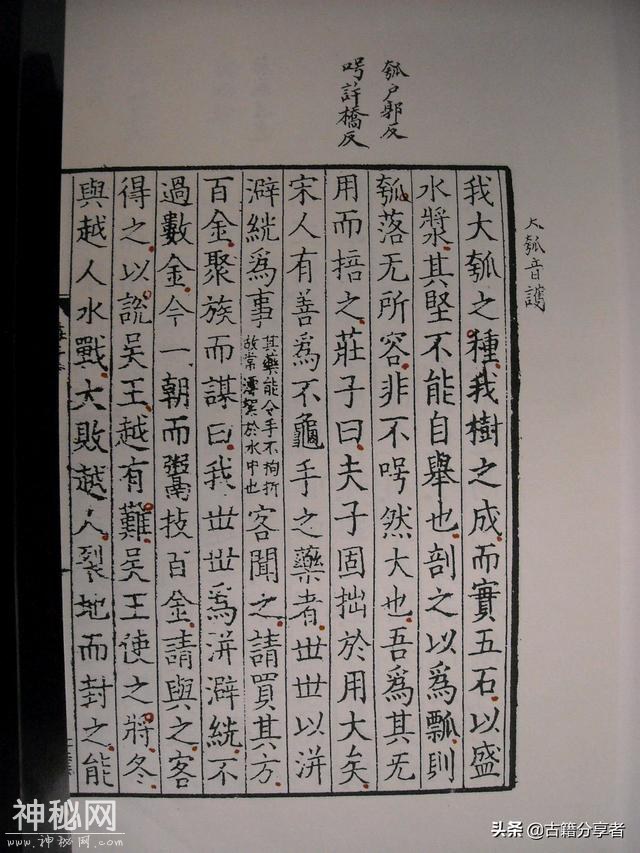 大瓠音護
瓠戶郭反
呺許橋反
我大瓠之種我樹之成而實五石以盛
水漿其堅不能自舉也剖之以爲瓢則
瓠落无所容非不呺然大也吾爲其无
用而掊之莊子曰夫子固拙於用大矣
宋人有善爲不龜手之藥者世世以洴
澼絖爲事其藥能令手不拘折故常漂絮於水中也客聞之請買其方
百金聚族而謀曰我世世爲洴澼絖不
過數金今一朝而鬻技百金請與之客
得之以說吳王越有難吳王使之將冬
與越人水戰大敗越人裂地而封之能
神秘网
www.shenmw.com
头条 @古籍分享者